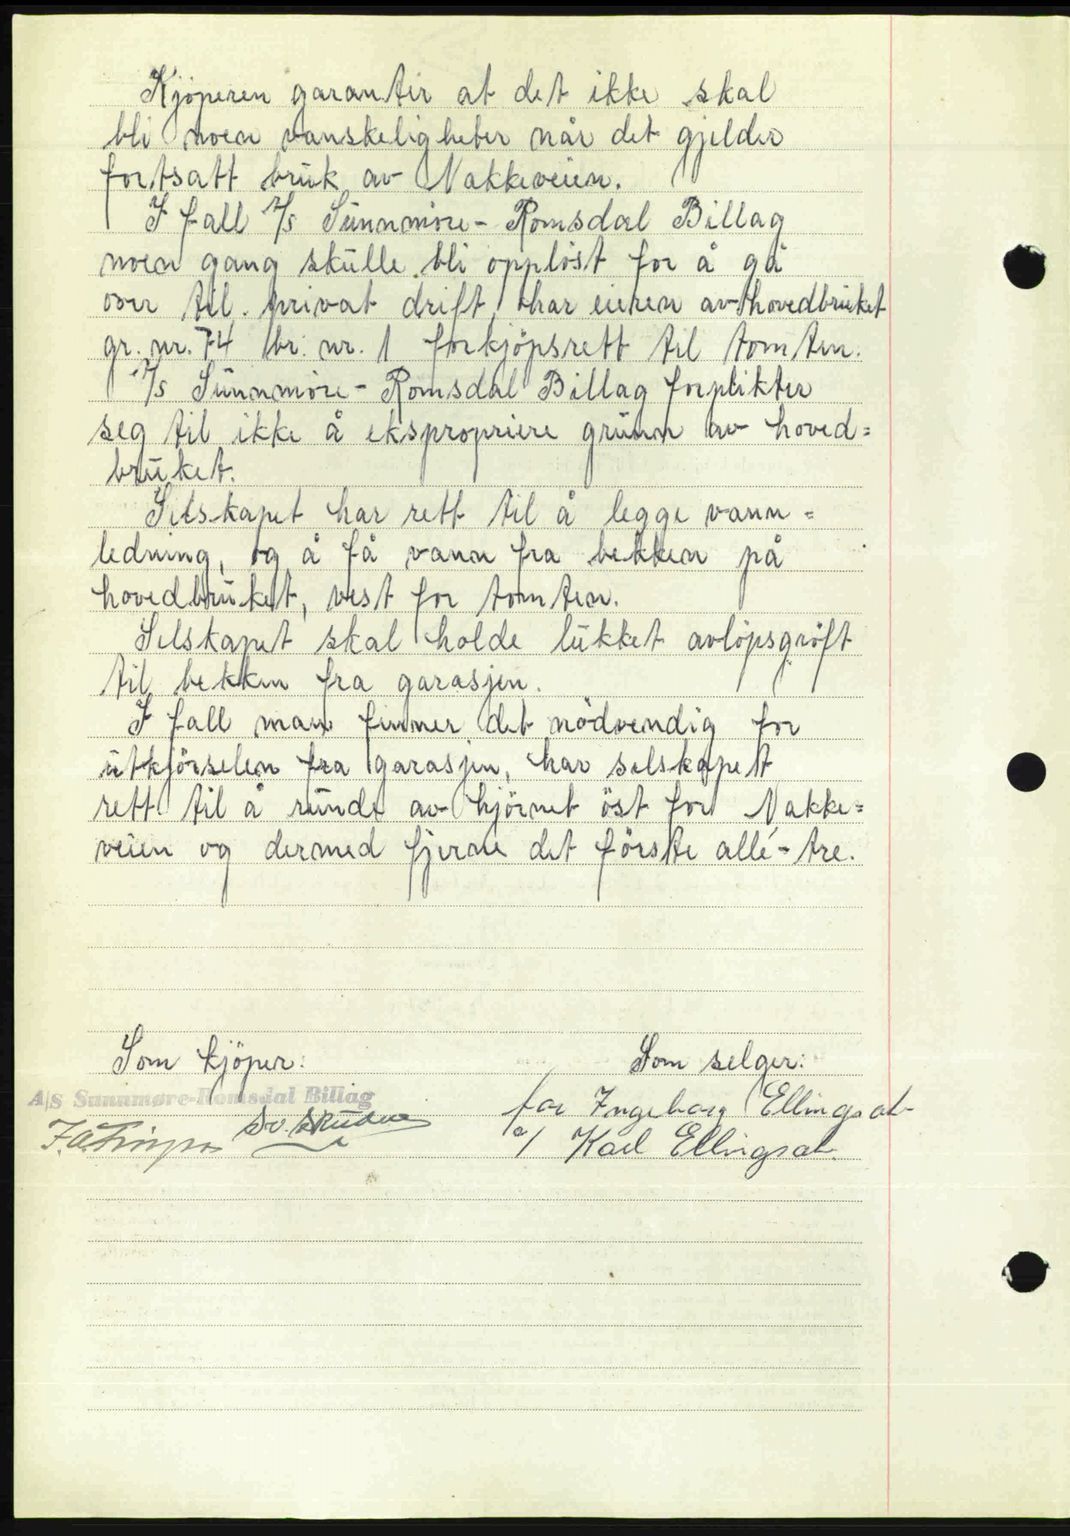 Kjöperen garanterer at det ikke skal
bli noen vanskeligheter når det gjelder
fortsatt bruk av Nakkeveien.
I fall A/s Sunnmöre-Romsdal Billag
noen gang skulle bli opplöst for å gå
over til privat drift, har eieren av hovedbruket
gr. nr. 74 br. nr. 1 forkjöpsrett til tomten.
A/s Sunnmöre-Romsdal Billag forplikter
seg til ikke å ekspropriere grunn av hoved=
bruket.
Selskapet har rett til å legge vann=
ledning, og å få vann fra bekken på
hovedbruket, vest for tomten.
Selskapet skal holde lukket avlöpsgröft
til bekken fra garasjen.
I fall man finner det nödvendig for
utkjörselen fra garasjen, har selskapet
rett til å runde av hjörnet öst for Nakke=
veien og dermed fjerne det förste allé-tre.
Som kjöper: Som selger:
A/S Sunnmøre-Romsdal Billag
for Ingeborg Ellingsæt
Sv. Skudve
Karl Ellingsæt